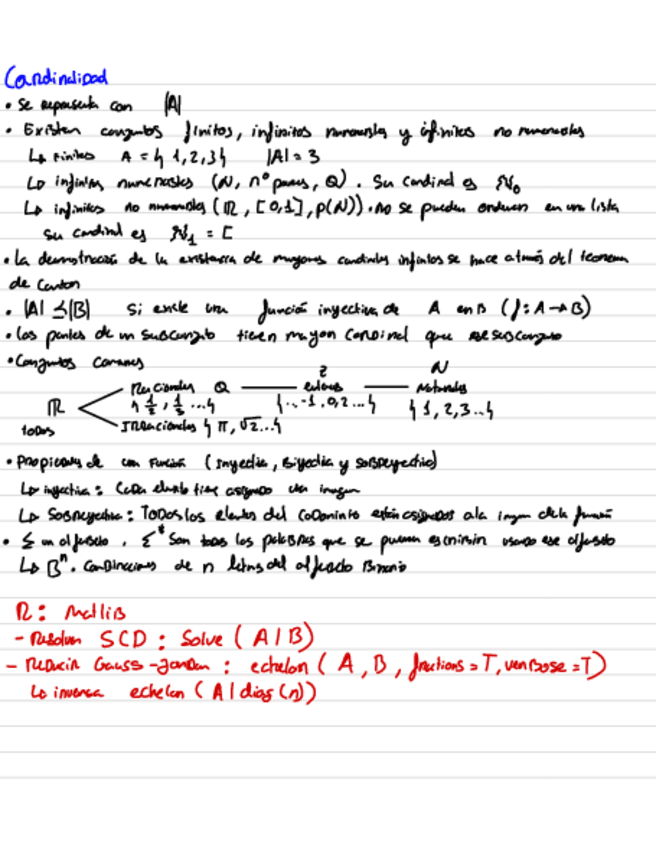 Cardinalidad
• Se representa con |A|
• Existen conjuntos finitos, infinitos numerables y infinitos no numerables
↳ Finitos A = { 1,2,3 } |A| = 3
↳ infinitos numerables (N, nº pares, Q). Su cardinal es ℵ₀
↳ infinitos no numerables (ℝ, [0,1], p(N)). No se pueden ordenar en una lista
su cardinal es ℵ₁ = C
• La demostración de la existencia de mayores cardinales infinitos se hace a través del teorema
de Cantor
• |A| ≤ |B| si existe una función inyectiva de A en B (f: A → B)
• Las partes de un subconjunto tienen mayor cardinal que ese subconjunto
• Conjuntos comunes
Z N
Racionales Q enteros Naturales
ℝ { 1/2, 1/3 ...} {...-1, 0, 2...} { 1, 2, 3...}
todos Irracionales { π, √2...}
• Propiedades de una función (Inyectiva, Biyectiva y sobreyectiva)
↳ inyectiva: Cada elemento tiene asignado una imagen
↳ Sobreyectiva: Todos los elementos del codominio están asignados a la imagen de la función
• Σ un alfabeto, Σ* son todas las palabras que se pueden escribir usando ese alfabeto
↳ Bⁿ. Combinaciones de n letras del alfabeto Binario
R: matlib
- Resolver SCD: Solve (A|B)
- Reducir Gauss-Jordan: echelon (A, B, fractions=T, verbose=T)
↳ inversa echelon (A|diag(n))